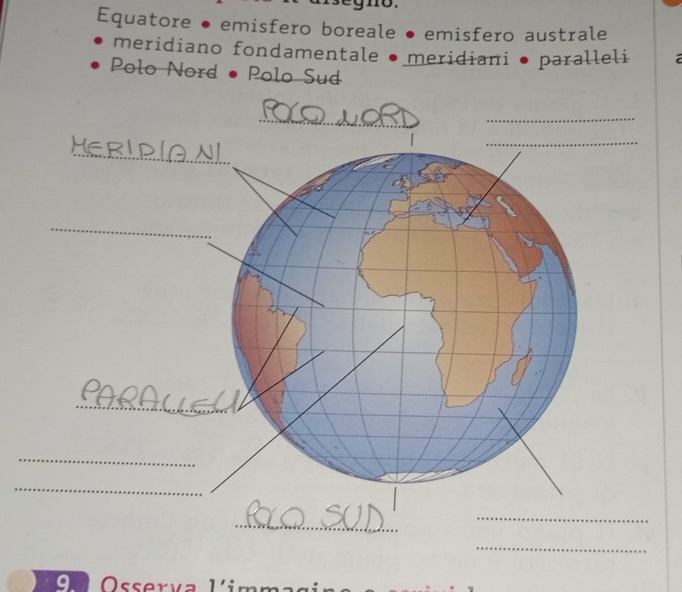 disegno.
Equatore • emisfero boreale • emisfero australe
• meridiano fondamentale • meridiani • paralleli
• Polo Nord • Polo Sud
POLO NORD
MERIDIANI
PARALLELI
POLO SUD
9. Osserva l'immagine e